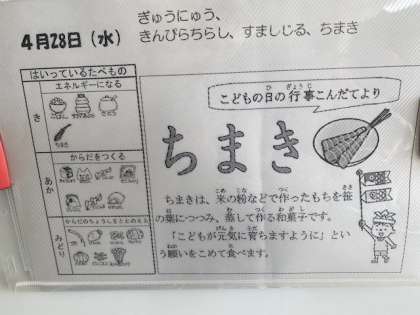 ぎゅうにゅう、
4月28日（水） きんぴらちらし、すましじる、ちまき
はいっているたべもの
エネルギーになる
き
ごはん
さとう
ちまき
からだをつくる
あか
からだのちょうしをととのえる
みどり
こどもの日の行事こんだてより
ちまき
ちまきは、米の粉などで作ったもちを笹
の葉につつみ、蒸して作る和菓子です。
「こどもが元気に育ちますように」とい
う願いをこめて食べます。